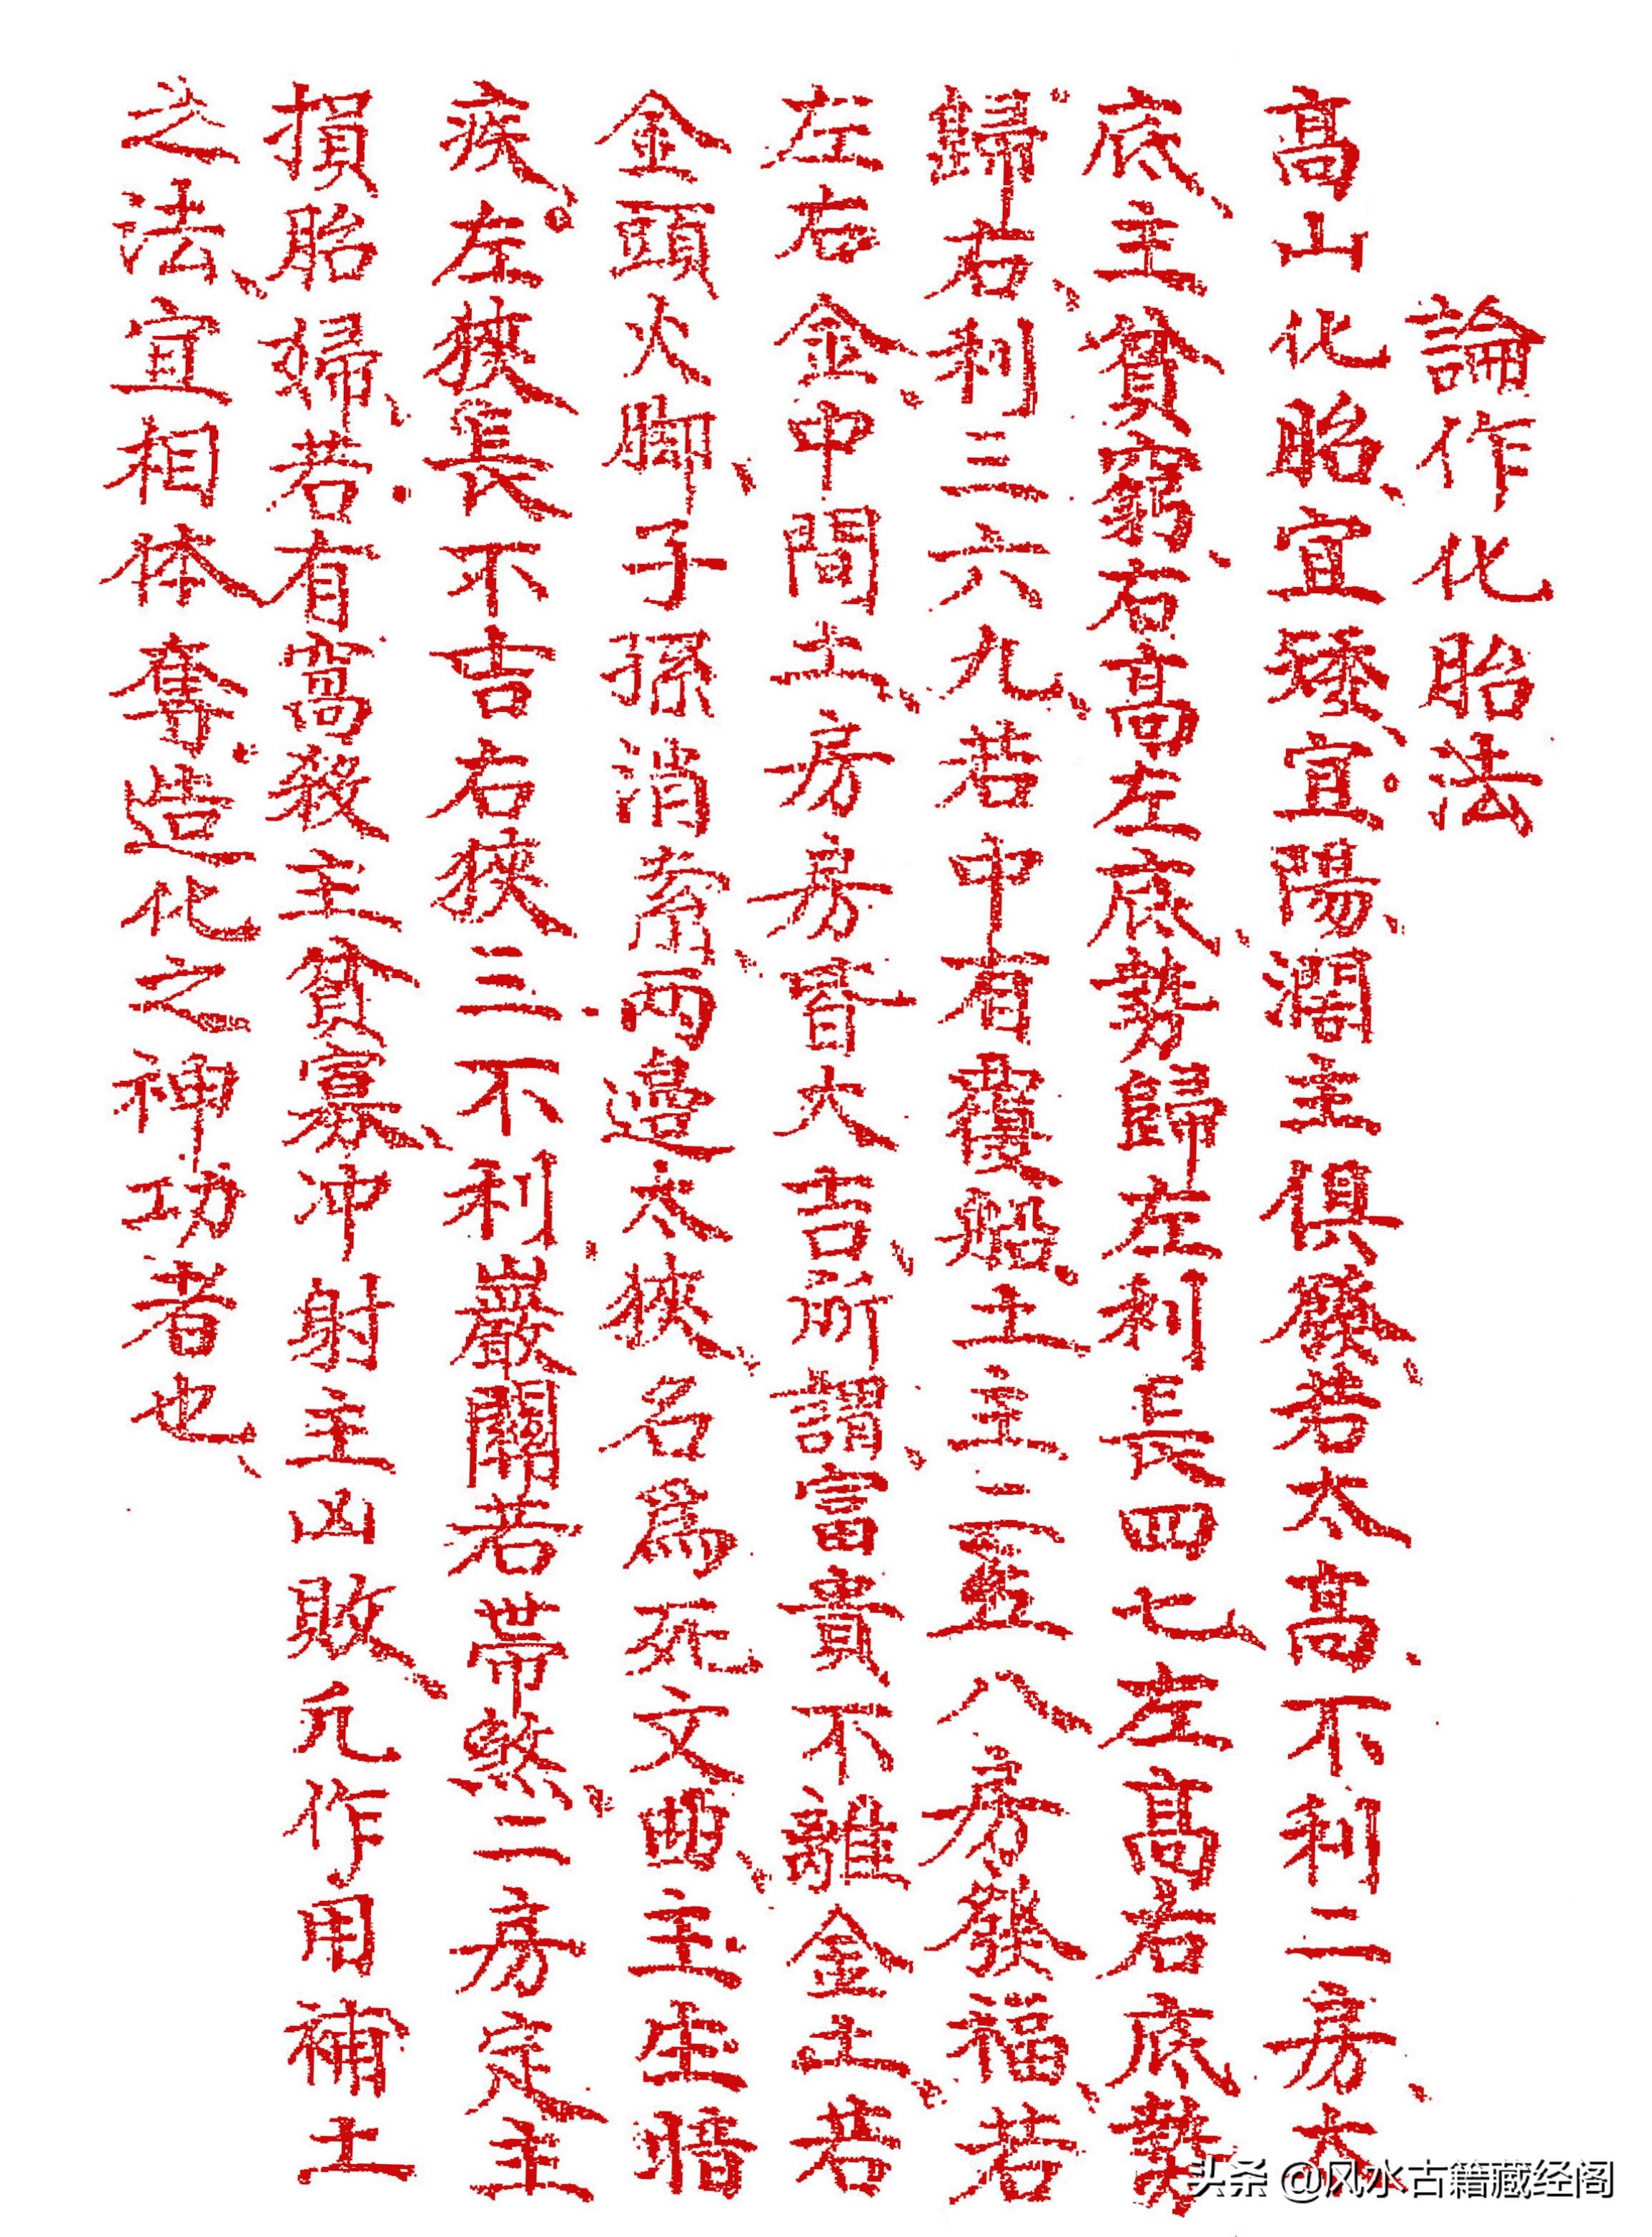 論作化胎法
髙山化胎宜矮宜陽濶主俱發若太髙不利二房太
底主貧窮右髙左底勢歸左利長四七左髙右底勢
歸右利三六九若中有覆船土主二五八房發福若
左右金中間土房房皆大吉所謂富貴不離金土若
金頭火脚子孫消索兩邉太狹名爲死文曲主生暗
疾左狹長不吉右狹三不利嚴關若帶煞二房定主
損胎婦若有窩殺主貧寡冲射主凶敗凢作用補土
之法宜相体奪造化之神功者也
头条 @风水古籍藏经阁